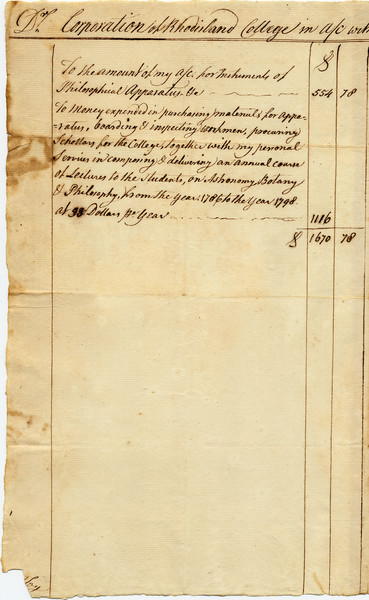 Dr. Corporation of Rhodeisland College in a/c with
$
To the amount of my a/c. for Instruments of
Philosophical Apparatus &c 554 78
To Money expended in purchasing materials for Appa-
-ratus, boarding & inspecting workmen, procuring
Schollars for the College, together with my personal
Services in composing & delivering an annual course
of Lectures to the Students, on Astronomy Botany
& Philosophy, from the Year 1786 to the Year 1798
at Dollars pr Year 1116
$ 1670 78